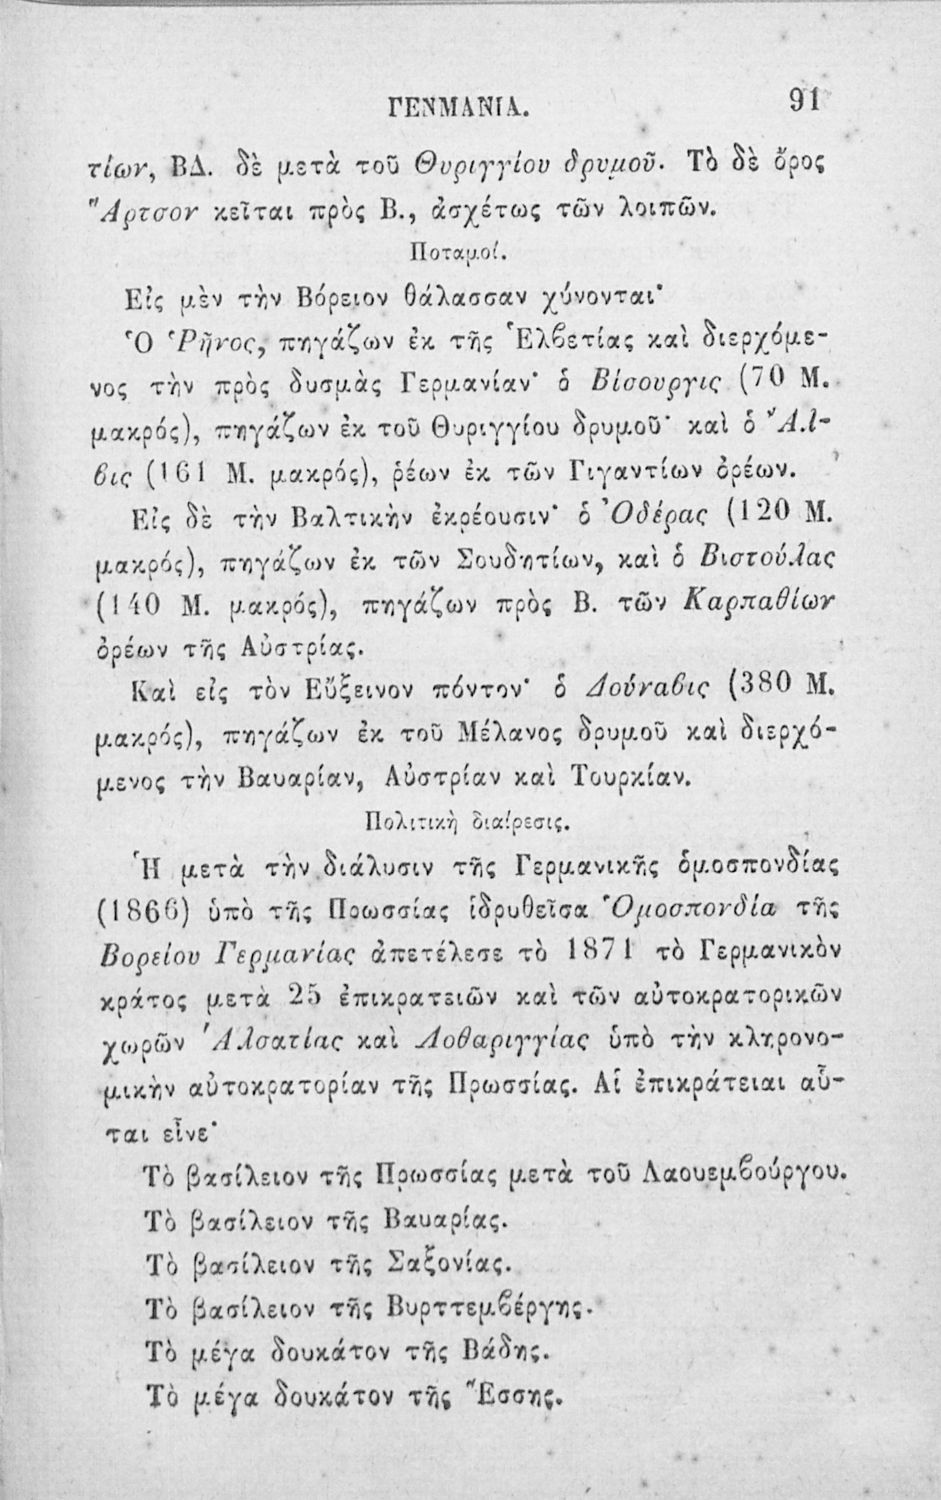 ΓΕΝΜΑΝΙΑ. 91
τίων, ΒΔ. δὲ μετὰ τοῦ Θυριγγίου δρυμοῦ. Τὸ δὲ ὄρος
"Αρτσον κεῖται πρὸς Β., ἀσχέτως τῶν λοιπῶν.
Ποταμοί.
Εἰς μὲν τὴν Βόρειον θάλασσαν χύνονται·
Ὁ Ῥῆνος, πηγάζων ἐκ τῆς Ἑλβετίας καὶ διερχόμε-
νος τὴν πρὸς δυσμὰς Γερμανίαν· ὁ Βίσουργις (70 Μ.
μακρός), πηγάζων ἐκ τοῦ Θυριγγίου δρυμοῦ· καὶ ὁ Ἄλ-
βις (161 Μ. μακρός), ῥέων ἐκ τῶν Γιγαντίων ὀρέων.
Εἰς δὲ τὴν Βαλτικὴν ἐκρέουσιν· ὁ Ὀδέρας (120 Μ.
μακρός), πηγάζων ἐκ τῶν Σουδητίων, καὶ ὁ Βιστούλας
(140 Μ. μακρός), πηγάζων πρὸς Β. τῶν Καρπαθίων
ὀρέων τῆς Αὐστρίας.
Καὶ εἰς τὸν Εὔξεινον πόντον· ὁ Δούναβις (380 Μ.
μακρός), πηγάζων ἐκ τοῦ Μέλανος δρυμοῦ καὶ διερχό-
μενος τὴν Βαυαρίαν, Αὐστρίαν καὶ Τουρκίαν.
Πολιτικὴ διαίρεσις.
Ἡ μετὰ τὴν διάλυσιν τῆς Γερμανικῆς ὁμοσπονδίας
(1866) ὑπὸ τῆς Πρωσσίας ἱδρυθεῖσα Ὁμοσπονδία τῆς
Βορείου Γερμανίας ἀπετέλεσε τὸ 1871 τὸ Γερμανικὸν
κράτος μετὰ 25 ἐπικρατειῶν καὶ τῶν αὐτοκρατορικῶν
χωρῶν Ἀλσατίας καὶ Λοθαριγγίας ὑπὸ τὴν κληρονο-
μικὴν αὐτοκρατορίαν τῆς Πρωσσίας. Αἱ ἐπικράτειαι αὗ-
ται εἶνε·
Τὸ βασίλειον τῆς Πρωσσίας μετὰ τοῦ Λαουεμβούργου.
Τὸ βασίλειον τῆς Βαυαρίας.
Τὸ βασίλειον τῆς Σαξονίας.
Τὸ βασίλειον τῆς Βυρττεμβέργης.
Τὸ μέγα δουκάτον τῆς Βάδης.
Τὸ μέγα δουκάτον τῆς Ἕσσης.